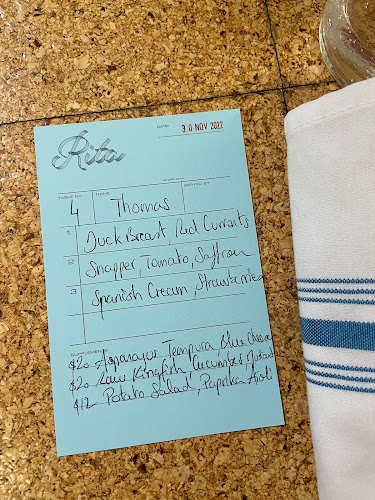 Rita
DATE: 30 NOV 2022
TABLE NO. NAME SERVED BY
4 Thomas
1 Duck Breast, Red Currants
2 Snapper, Tomato, Saffron
3 Spanish Cream, Strawberries
SUPPLEMENT
$20 Asparagus Tempura, Blue Cheese
$20 Raw Kingfish, Cucumber, Mustard
$12 Potato Salad, Paprika Aioli